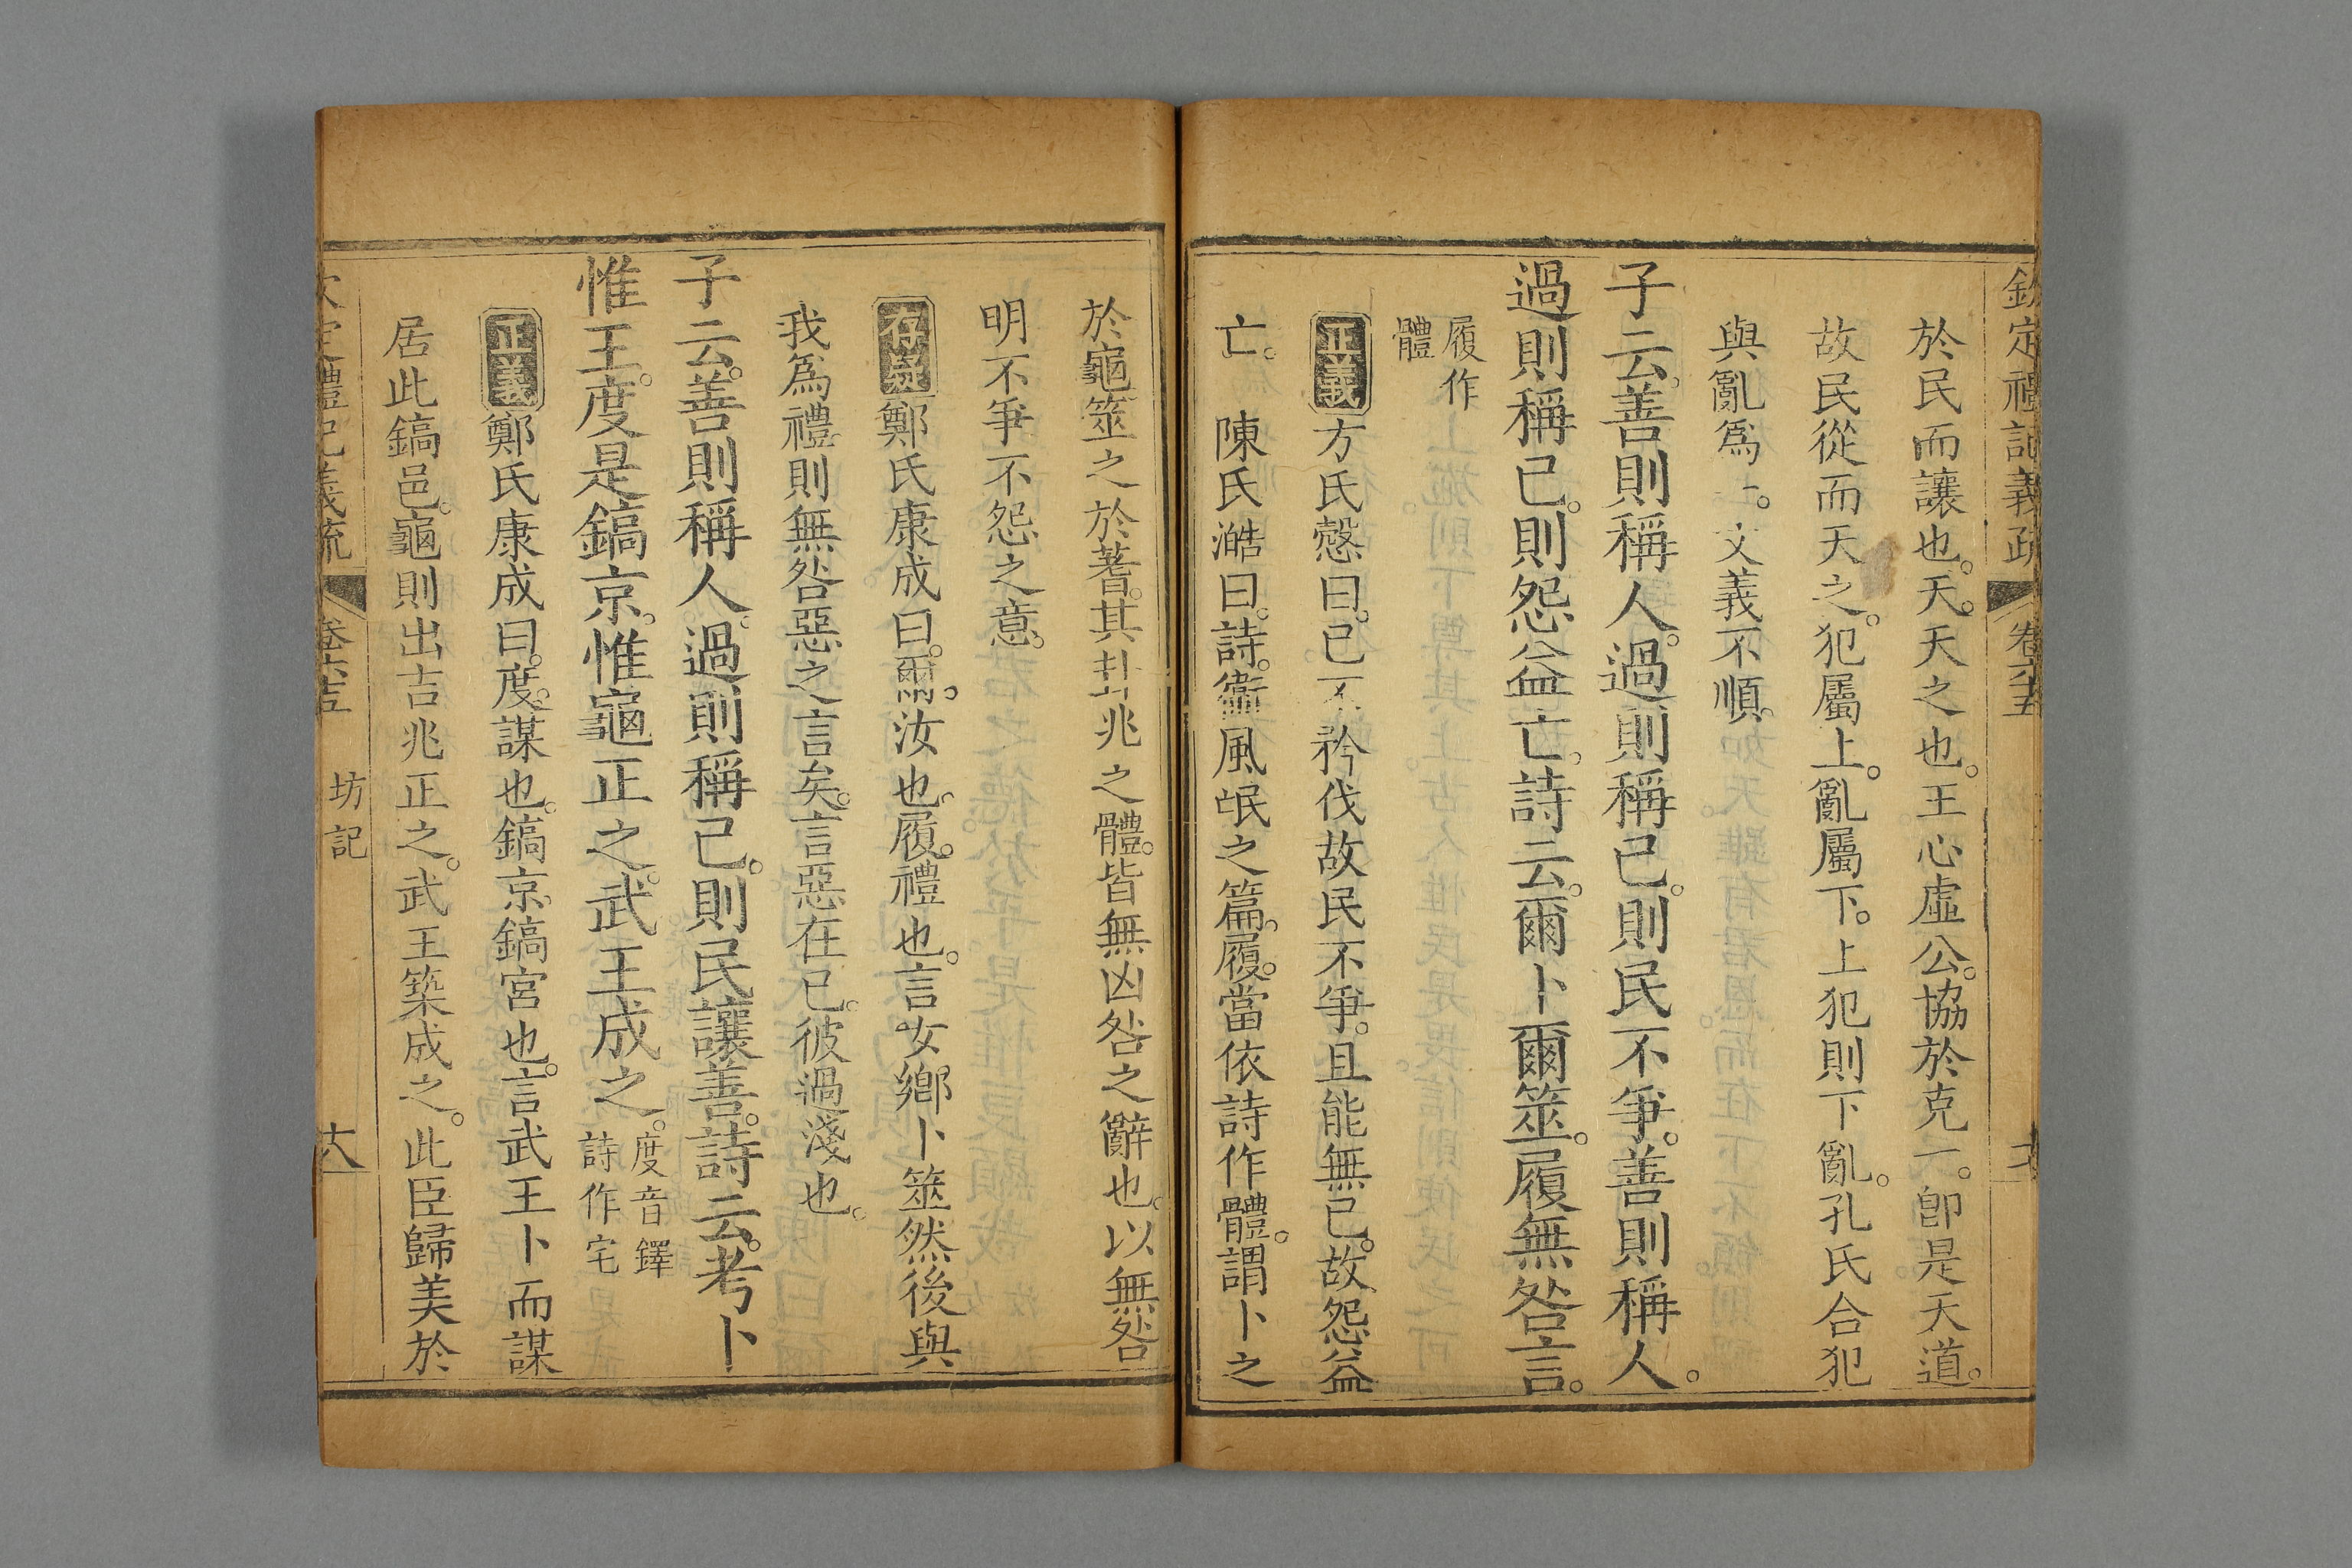 欽定禮記義疏 卷六十五
於民而讓也。天。天之也。王心虛公。協於克一。卽是天道。
故民從而天之。犯屬上。亂屬下。上犯則下亂。孔氏合犯
與亂爲一。文義不順。
子云。善則稱人。過則稱己。則民不爭。善則稱人。
過則稱己。則怨益亡。詩云。爾卜爾筮。履無咎言。
履作
體
正義方氏慤曰。己不矜伐。故民不爭。且能無己。故怨益
亡。 陳氏澔曰。詩。衞風氓之篇。履。當依詩作體。謂卜之
於龜。筮之於蓍。其卦兆之體。皆無凶咎之辭也。以無咎
明不爭不怨之意。
存疑鄭氏康成曰。爾。汝也。履。禮也。言女鄉卜筮然後與
我爲禮。則無咎惡之言矣。言惡在己。彼過淺也。
子云。善則稱人。過則稱己。則民讓善。詩云。考卜
惟王。度是鎬京。惟龜正之。武王成之。
度音鐸
詩作宅
正義鄭氏康成曰。度。謀也。鎬京。鎬宮也。言武王卜而謀
居此鎬邑。龜則出吉兆正之。武王築成之。此臣歸美於
欽定禮記義疏 卷六十五 坊記 十八